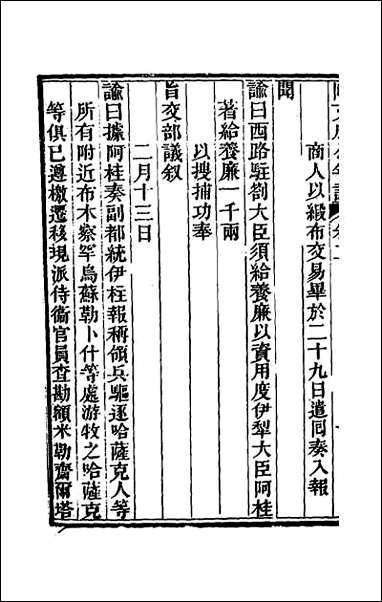 商人以緞布交易畢於二十九日遣囘奏入報
聞
諭曰西路駐劄大臣須給養廉以資用度伊犁大臣阿桂
著給養廉一千兩
以搜捕功奉
旨交部議叙
二月十三日
諭曰據阿桂奏副都統伊柱報稱領兵驅逐哈薩克人等
所有附近布木察罕烏蘇勒卜什等處游牧之哈薩克
等俱已遵檄遷移現派侍衞官員查勘額米勒齋爾塔